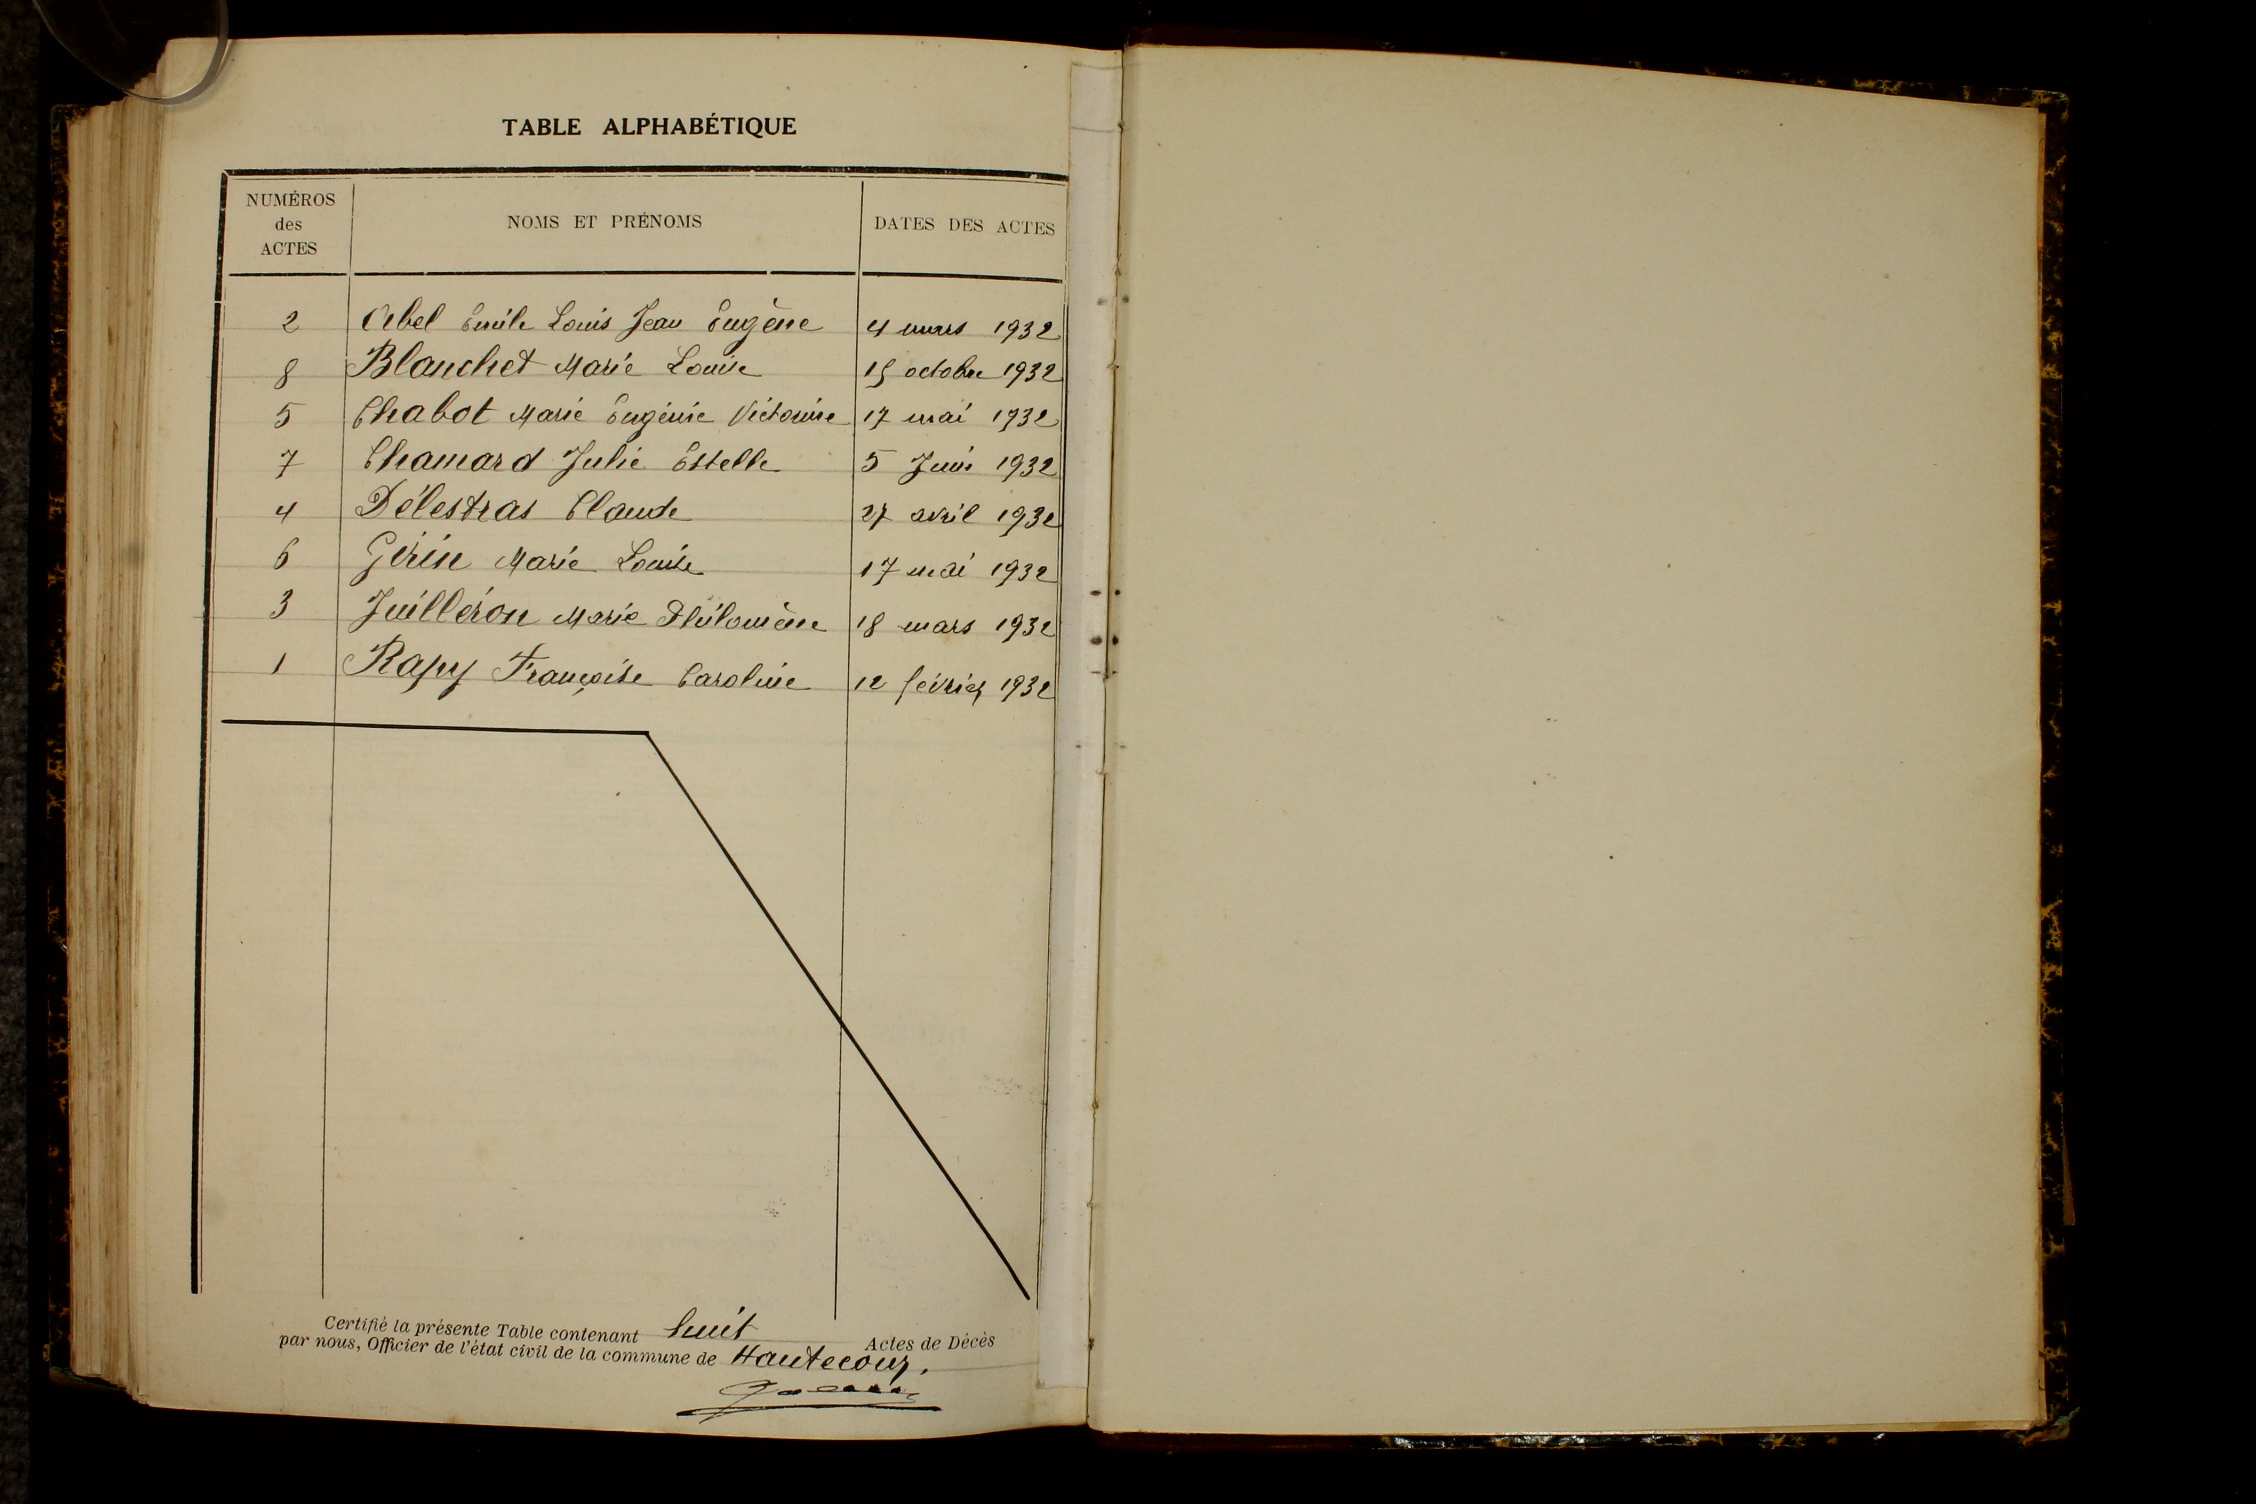 TABLE ALPHABÉTIQUE
NUMÉROS des ACTES NOMS ET PRÉNOMS DATES DES ACTES
2 Abel Emile Louis Jean Eugène 4 mars 1932
8 Blanchet Marie Louise 15 octobre 1932
5 Chabot Marie Eugénie Victorine 17 mai 1932
7 Chamard Julie Estelle 5 Juin 1932
4 Délestras Claude 27 avril 1932
6 Gérin Marie Louise 17 mai 1932
3 Juilléron Marie Philomène 18 mars 1932
1 Rapy Françoise Caroline 12 février 1932
Certifié la présente Table contenant huit Actes de Décès
par nous, Officier de l'état civil de la commune de Hautecour.